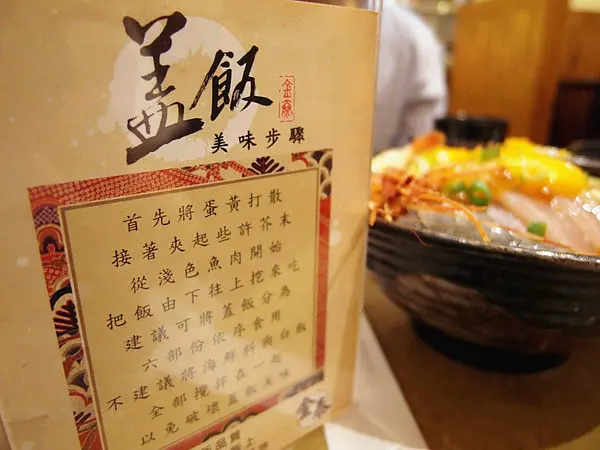 盖飯
美味步驟
首先將蛋黃打散
接著夾起些許芥末
從淺色魚肉開始
把飯由下往上挖來吃
建議可將蓋飯分為
六部份依序食用
不建議將海鮮料與白飯
全部攪拌在一起
以免破壞蓋飯美味